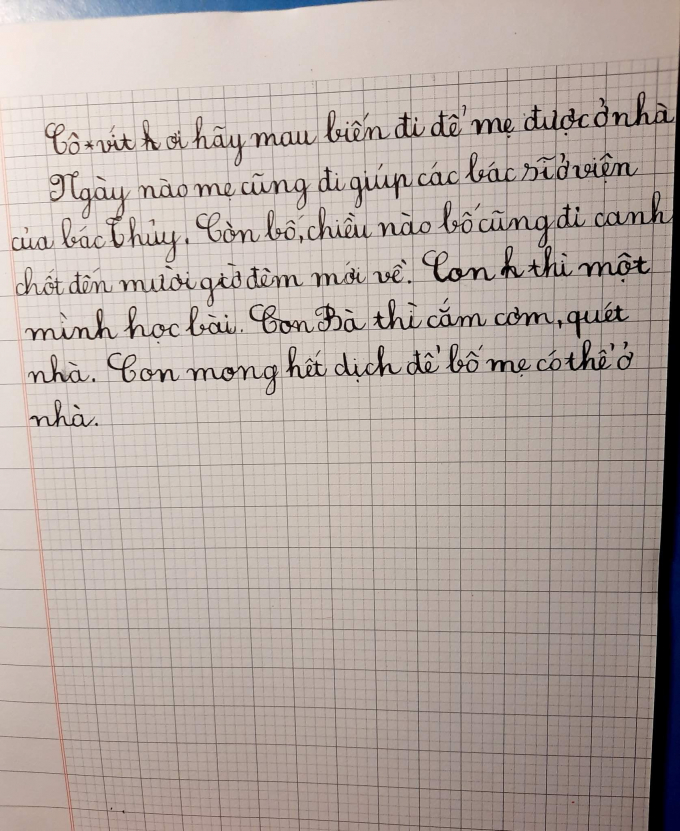 Cô-vít ơi hãy mau biến đi để mẹ được ở nhà
Ngày nào mẹ cũng đi giúp các bác sĩ ở viện
của bác Thủy. Còn bố, chiều nào bố cũng đi canh
chốt đến mười giờ đêm mới về. Con thì một
mình học bài. Còn Bà thì cắm cơm, quét
nhà. Con mong hết dịch để bố mẹ có thể ở
nhà.